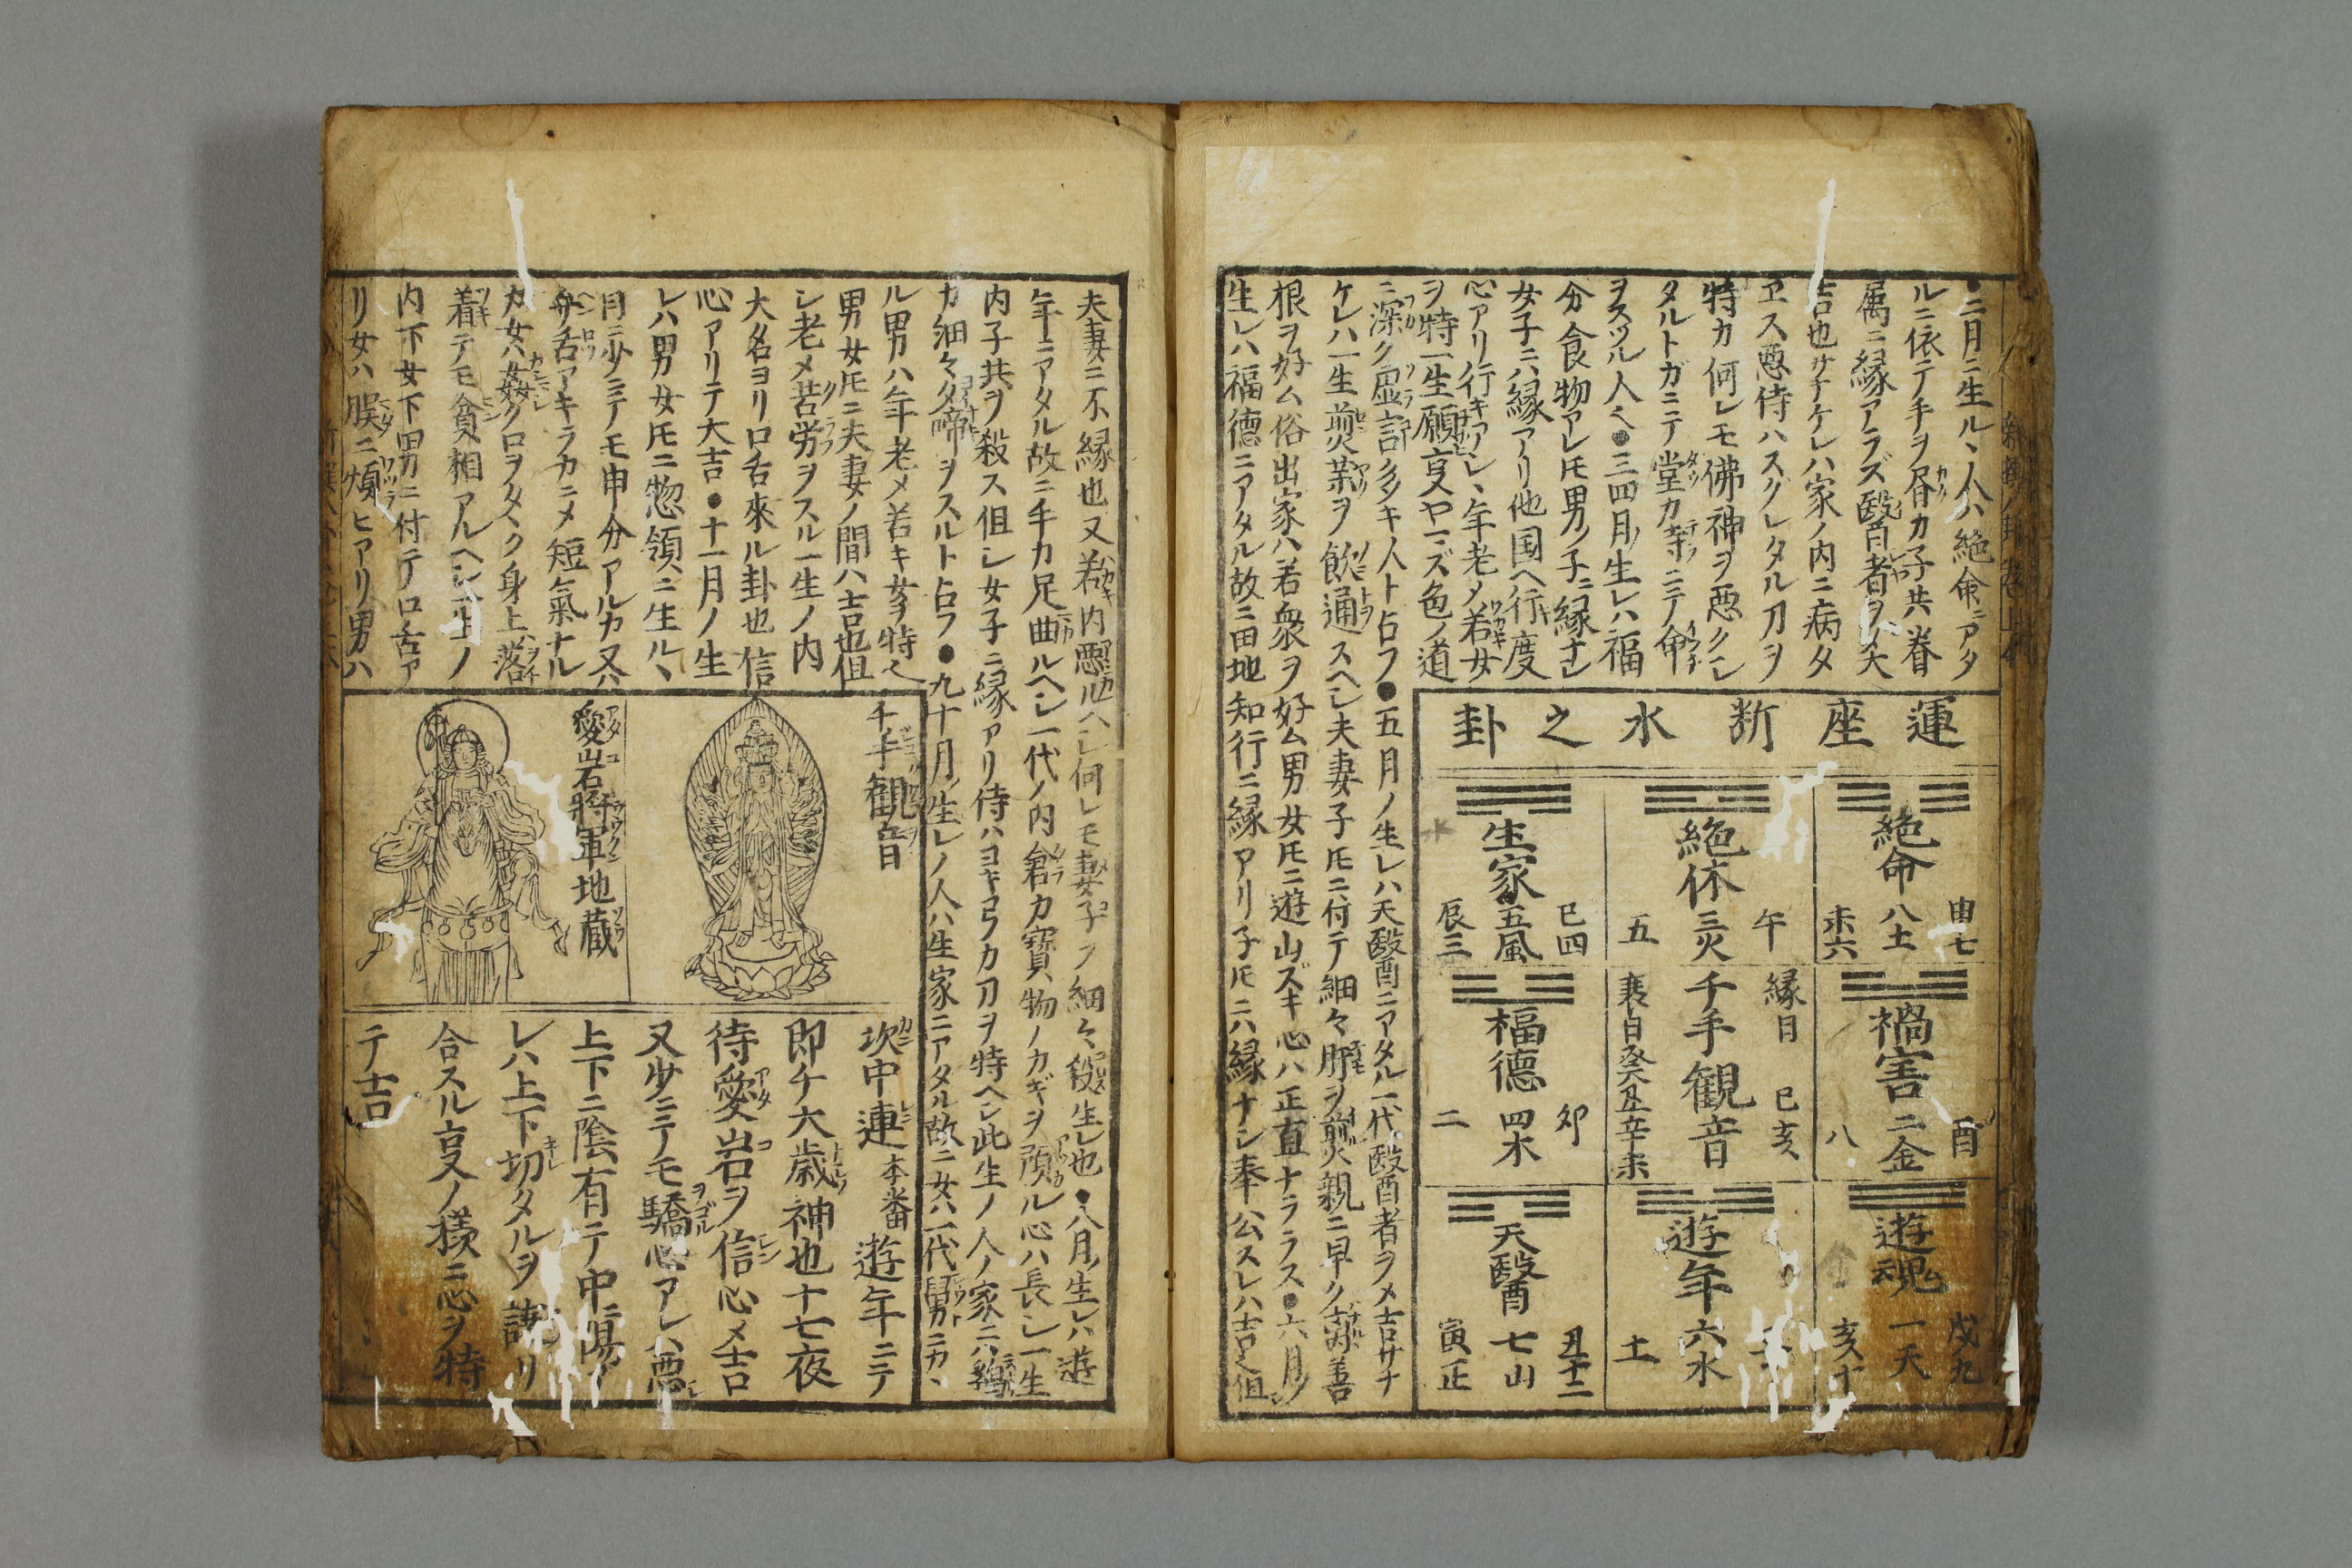 ●二月ニ生ル丶人ハ絶命ニアタ
ルニ依テ手ヲ屑カ子共眷
属ニ縁アラズ醫者ヲメ大
吉也サナケレハ家ノ内ニ病タ
ヱス悪侍ハスグレタル刀ヲ
特カ何レモ佛神ヲ悪クシ
タルトガニテ堂カ寺ニテノ命
ヲスツル人〱●三四月ノ生レハ福
分食物アレ𪜈男ノ子ニ縁ナシ
女子ニハ縁アリ他国ヘ行度
心アリ行キアレ丶年老メ若女
ヲ特一生願亨ヤマズ色ノ道
ニ深ク虚言多キ人ト占フ●五月ノ生レハ天醫ニアタル一代醫者ラメ吉サナ
ケレハ一生煎薬ヲ飲通スヘシ夫妻子𪜈ニ付テ細々肝ヲ煎親ニ早ク辞善
根ヲ好ム俗出家ハ若衆ヲ好ム男女𪜈ニ遊山ズキ心ハ正直ナラス●六月ノ
生レハ福德ニアタル故ニ田地知行ニ縁アリ子𪜈ニハ縁ナシ奉公スレハ吉〱但
運座断水之卦
絶命
申七
八土
未六
禍害
酉
二金
八
遊魂
戌九
一天
亥十
絶体
午
三火
五
縁日
巳亥
千手観音
未
遊年
六水
土
生家
巳四
五風
辰三
福德
卯
四木
二
天醫
丑十二
七山
寅正
夫妻ニ不縁也又若キ内悪ルヘシ何レモ妻子ヲ細々殺生レ也●八月ノ生レハ遊
年ニアタル故ニ手カ足曲ルヘシ一代ノ内倉カ寶物ノカギヲ預ル心ハ長シ一生
内子共ヲ殺ス但シ女子ニ縁アリ侍ハヨキ弓カ刀ヲ特ヘシ此生ノ人ノ家ニハ
カ細々夕啼ヲスルト占フ●九十月ノ生レノ人ハ生家ニアタル故ニ女ハ一代舅ニカ丶
ル男ハ年老メ若キ女ヲ特〱
男女𪜈ニ夫妻ノ間ハ吉也但
シ老メ苦労ヲスル一生ノ内
大名ヨリ口舌來ル卦也信
心アリテ大吉●十一月ノ生
レハ男女𪜈ニ惣領ニ生ル丶
月ニ少ミテモ申分アルカ又ハ
弁舌アキラカニメ短氣ナル
カ女ハ姦ク口ヲタ丶ク身上落
着テモ貧相アルヘシ一生ノ
内下女下男ニ付テ口舌ア
リ女ハ腹ニ煩ヒアリ男ハ
千手観音
愛岩將軍地蔵
坎中連本番遊年ニテ
即チ大歳神也十七夜
待愛岩ヲ信心メ吉
又少ミテモ驕心アレハ悪シ
上下ニ陰有テ中ニ陽ア
レハ上下切タルヲ謙リ
合スル亨ノ様ニ心ヲ特
テ吉